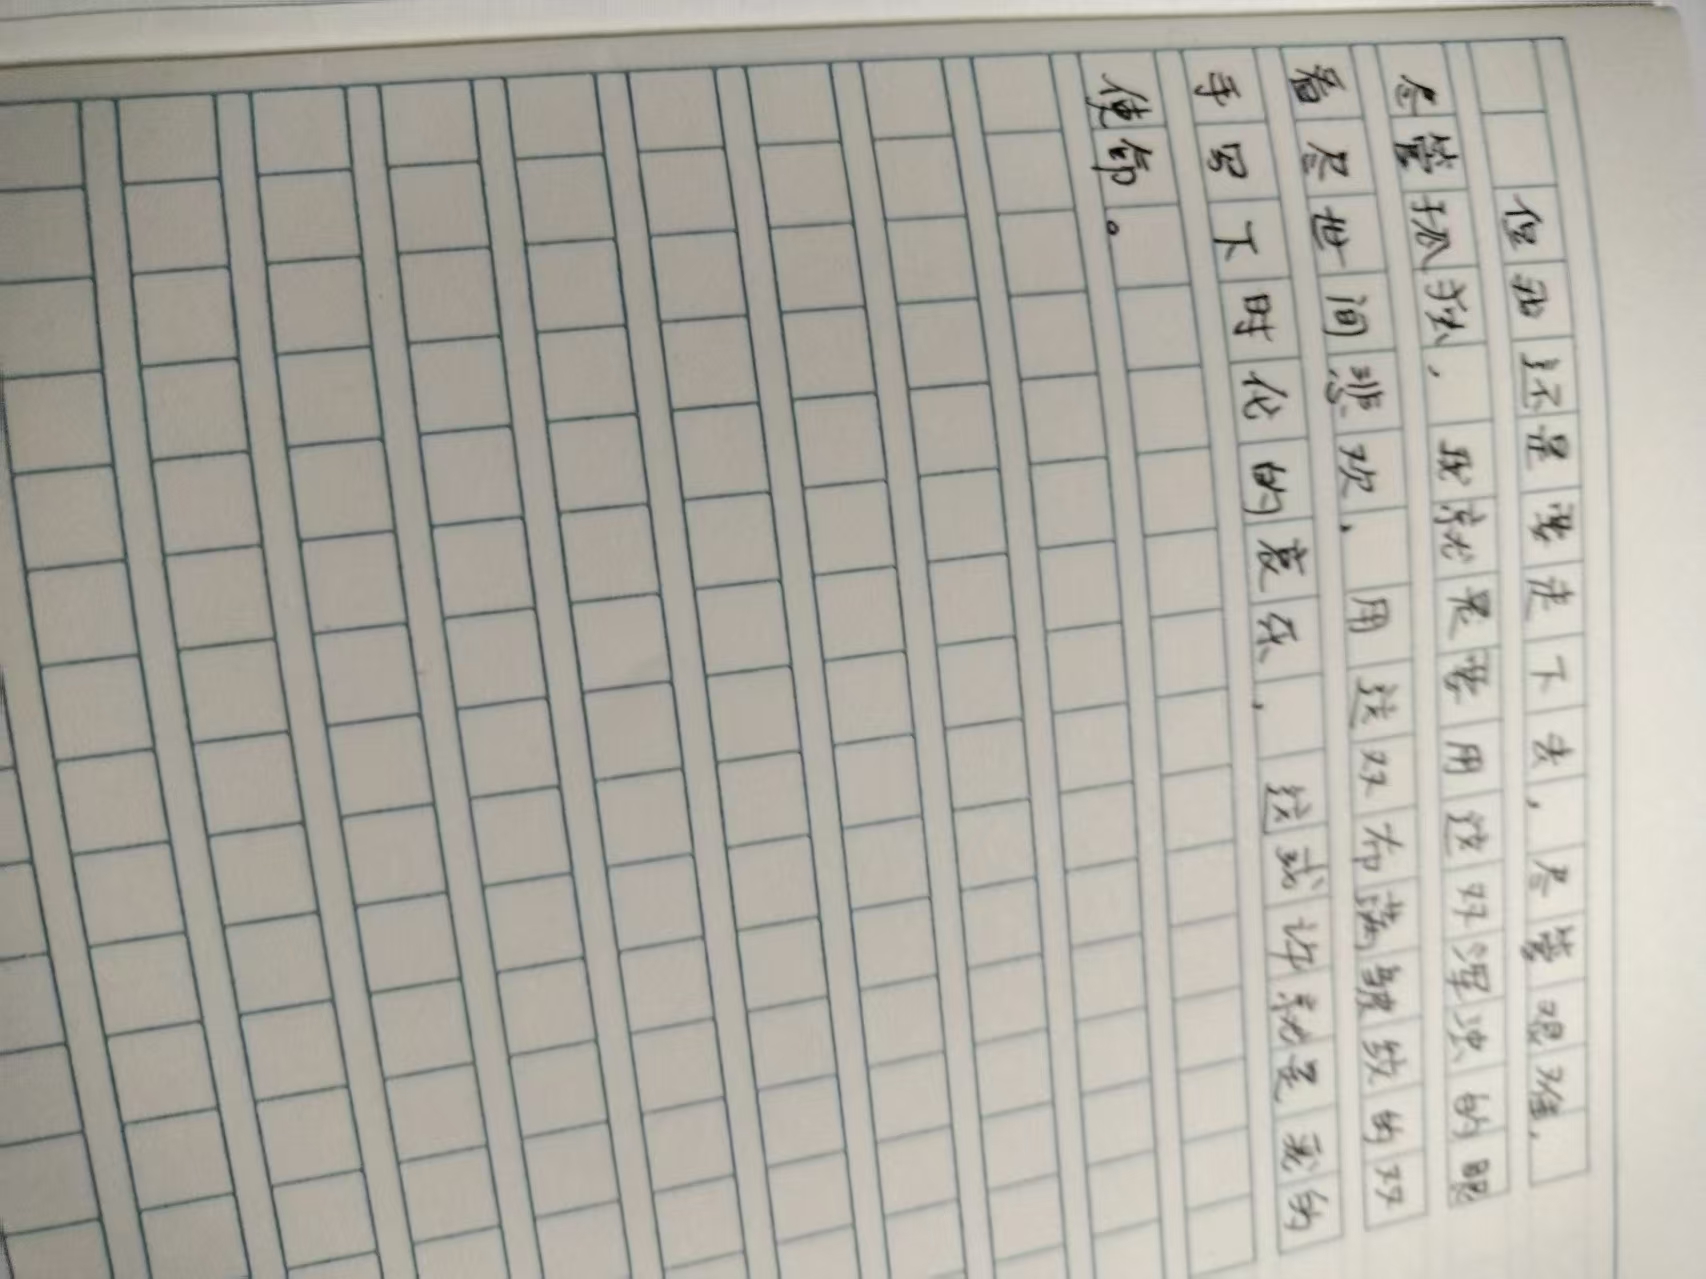 但我还是要走下去，尽管艰难，
尽管孤独，我就是要用这双浑浊的眼
看尽世间悲欢，用这双布满皱纹的双
手写下时代的哀乐，这或许就是我的
使命。